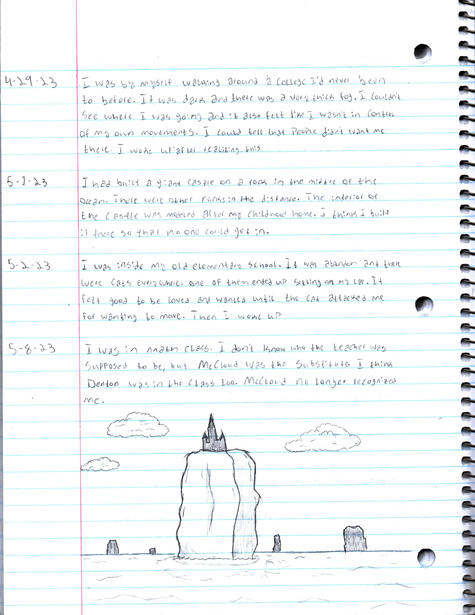 4-29-23 I was by myself walking around a college I'd never been
to before. It was dark and there was a very thick fog. I couldn't
see where I was going and it also felt like I wasn't in control
of my own movements. I could tell that people didn't want me
there. I woke up after realizing this.
5-1-23 I had built a giant castle on a rock in the middle of the
ocean. There were other rocks in the distance. The interior of
the castle was modeled after my childhood home. I think I built
it there so that no one could get in.
5-2-23 I was inside my old elementary school. It was abandon and there
were cats everywhere. one of them ended up sitting on my lap. It
felt good to be loved and wanted until the cat attacked me
for wanting to move. Then I woke up
5-8-23 I was in math class. I don't know who the teacher was
supposed to be, but McCloud was the substitute. I think
Denton was in the class too. McCloud no longer recognized
me.